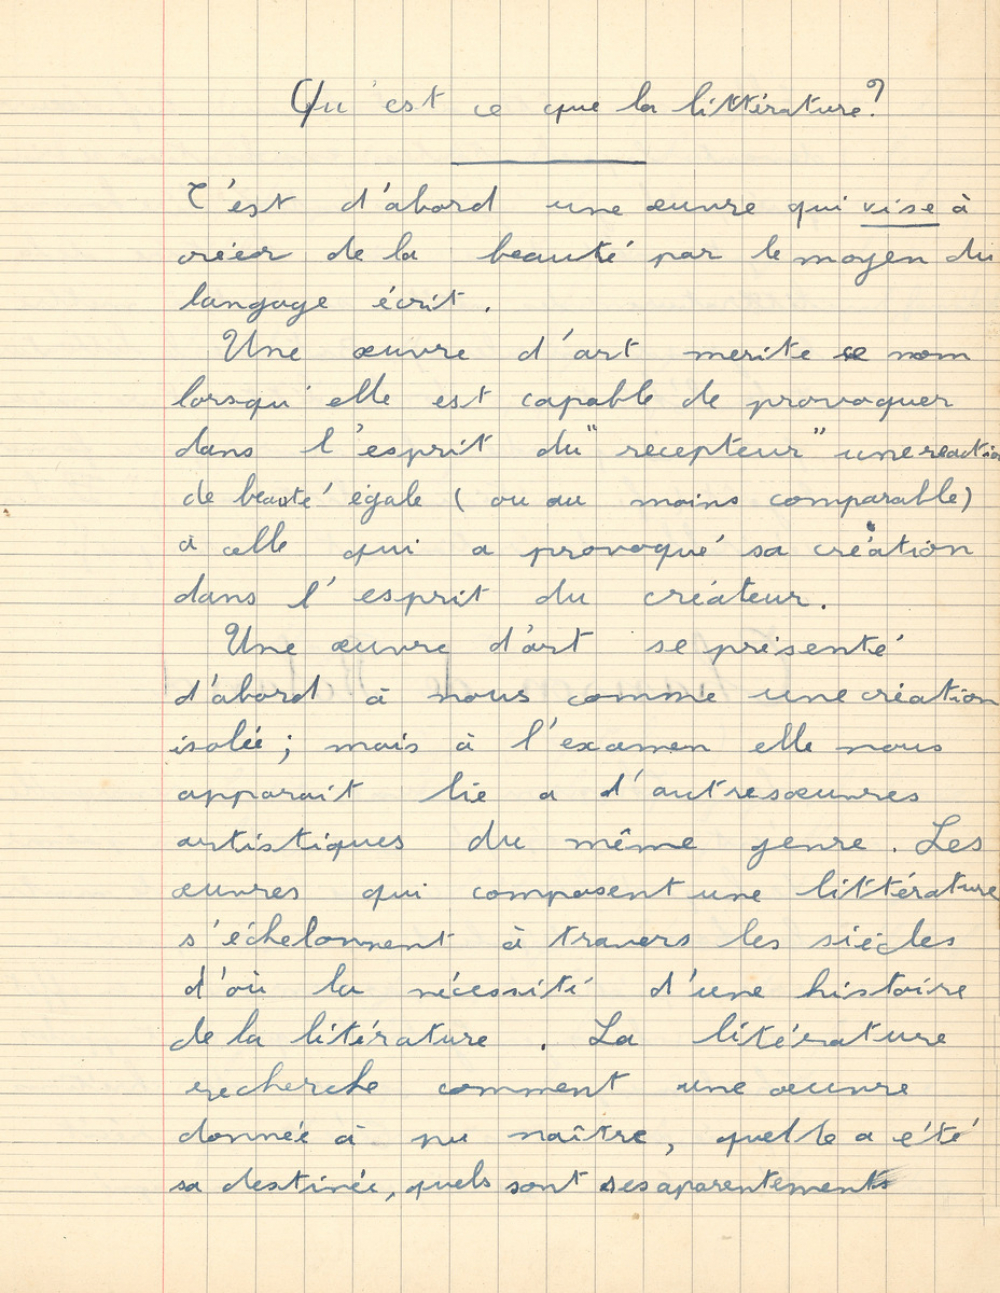 Qu'est ce que la littérature?
C'est d'abord une œuvre qui vise à
créer de la beauté par le moyen du
langage écrit.
Une œuvre d'art merite ce nom
lorsqu'elle est capable de provoquer
dans l'esprit du "recepteur" une reaction
de beauté égale (ou au moins comparable)
à celle qui a provoqué sa création
dans l'esprit du créateur.
Une œuvre d'art se présenté
d'abord à nous comme une création
isolée; mais à l'examen elle nous
apparait lié a d'autres œuvres
artistiques du même genre. Les
œuvres qui composent une littérature
s'échelonnent à travers les siècles
d'où la nécessité d'une histoire
de la litérature. La litérature
recherche comment une œuvre
donnée à pu naître, quelle a été
sa destinée, quels sont ses aparentements